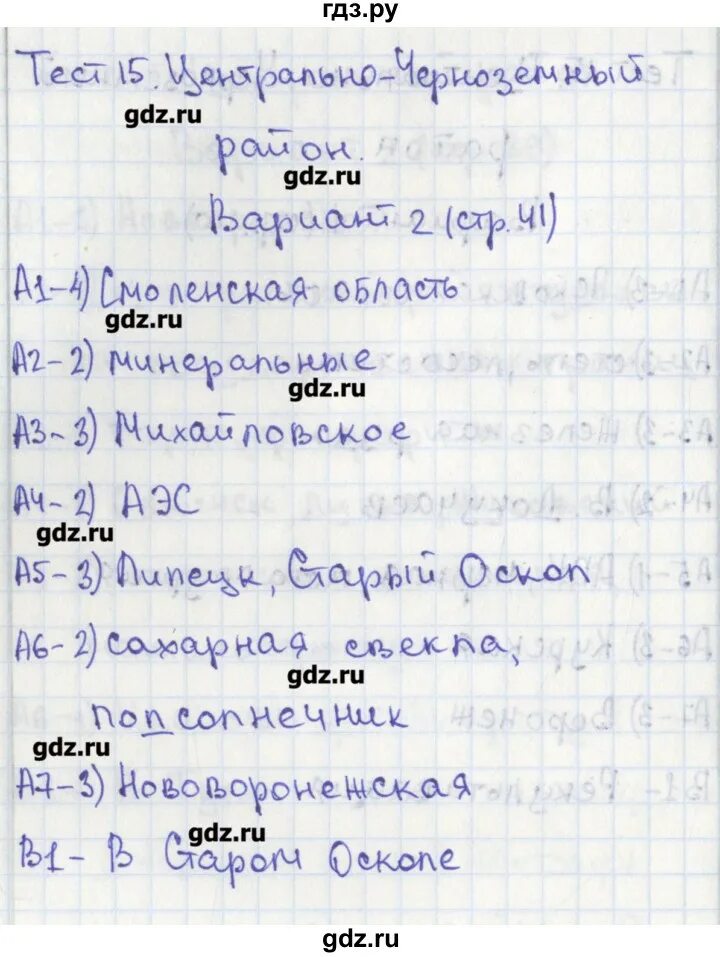 гдз.ру
Тест 15. Центрально-Черноземный
gdz.ru
район.
gdz.ru
Вариант 2 (стр. 41)
А1-4) Смоленская область
gdz.ru
А2-2) минеральные
gdz.ru
А3-3) Михайловское
А4-2) АЭС
gdz.ru
А5-3) Липецк, Старый Оскол
А6-2) сахарная свекла,
gdz.ru
подсолнечник
gdz.ru
А7-3) Нововоронежская
gdz.ru
В1- В Старом Осколе
gdz.ru